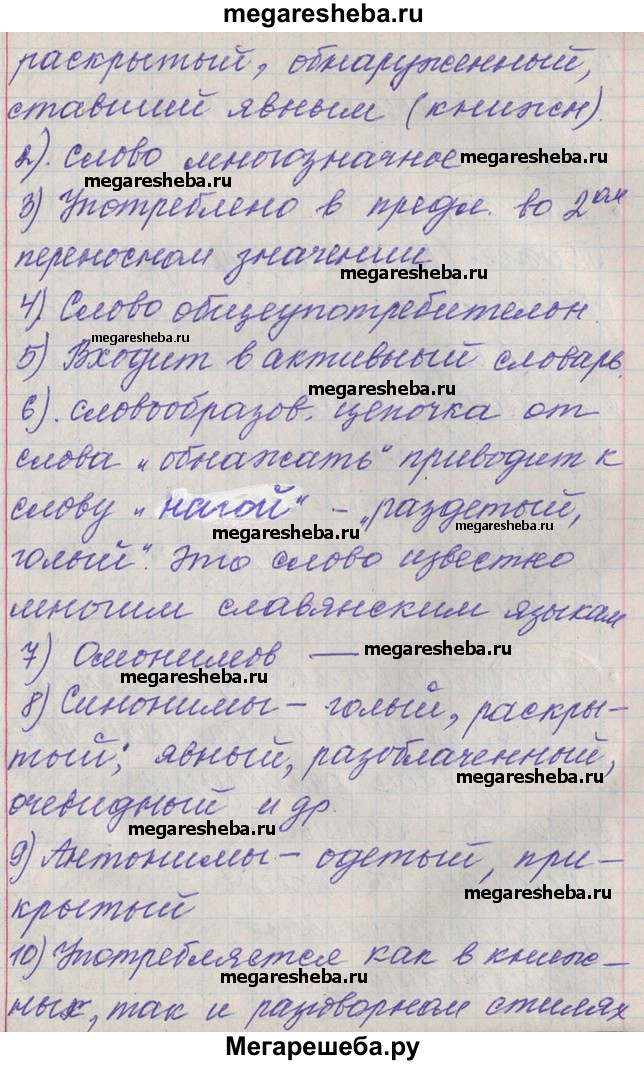 megaresheba.ru
раскрытый, обнаруженный,
ставший явным (книжн).
2). Слово многозначное megaresheba.ru
megaresheba.ru
3) Употреблено в предл. во 2ом
переносном значении
megaresheba.ru
4) Слово общеупотребительн.
megaresheba.ru
5) Входит в активный словарь.
megaresheba.ru
6). Словообразов. цепочка от
слова „обнажать" приводит к
слову „нагой" – „раздетый,
megaresheba.ru megaresheba.ru
голый". Это слово известно
многим славянским языкам
7) Омонимов — megaresheba.ru
megaresheba.ru
8) Синонимы – голый, раскры-
тый; явный, разоблаченный,
megaresheba.ru
очевидный и др.
megaresheba.ru
9) Антонимы – одетый, при-
крытый megaresheba.ru
10) Употребляется как в книж-
megaresheba.ru
ных, так и разговорном стилях
Мегарешеба.ру